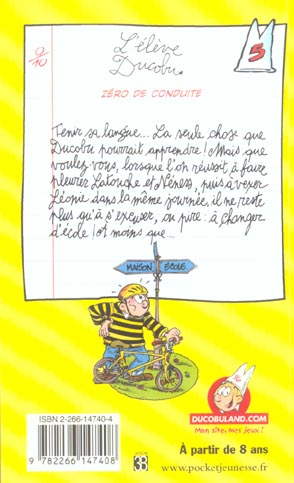 0/10
L'élève
Ducobu
5
ZÉRO DE CONDUITE
Tenir sa langue... La seule chose que
Ducobu pourrait apprendre ! Mais que
voulez-vous, lorsque l'on réussit à faire
pleurer Latouche et Néness, puis à vexer
Léonie dans la même journée, il ne reste
plus qu'à s'excuser, ou pire : à changer
d'école ! A moins que...
MAISON
ÉCOLE
ISBN 2-266-14740-4
9 782266 147408
DUCOBULAND.COM
Mon site, mes jeux !
À partir de 8 ans
www.pocketjeunesse.fr